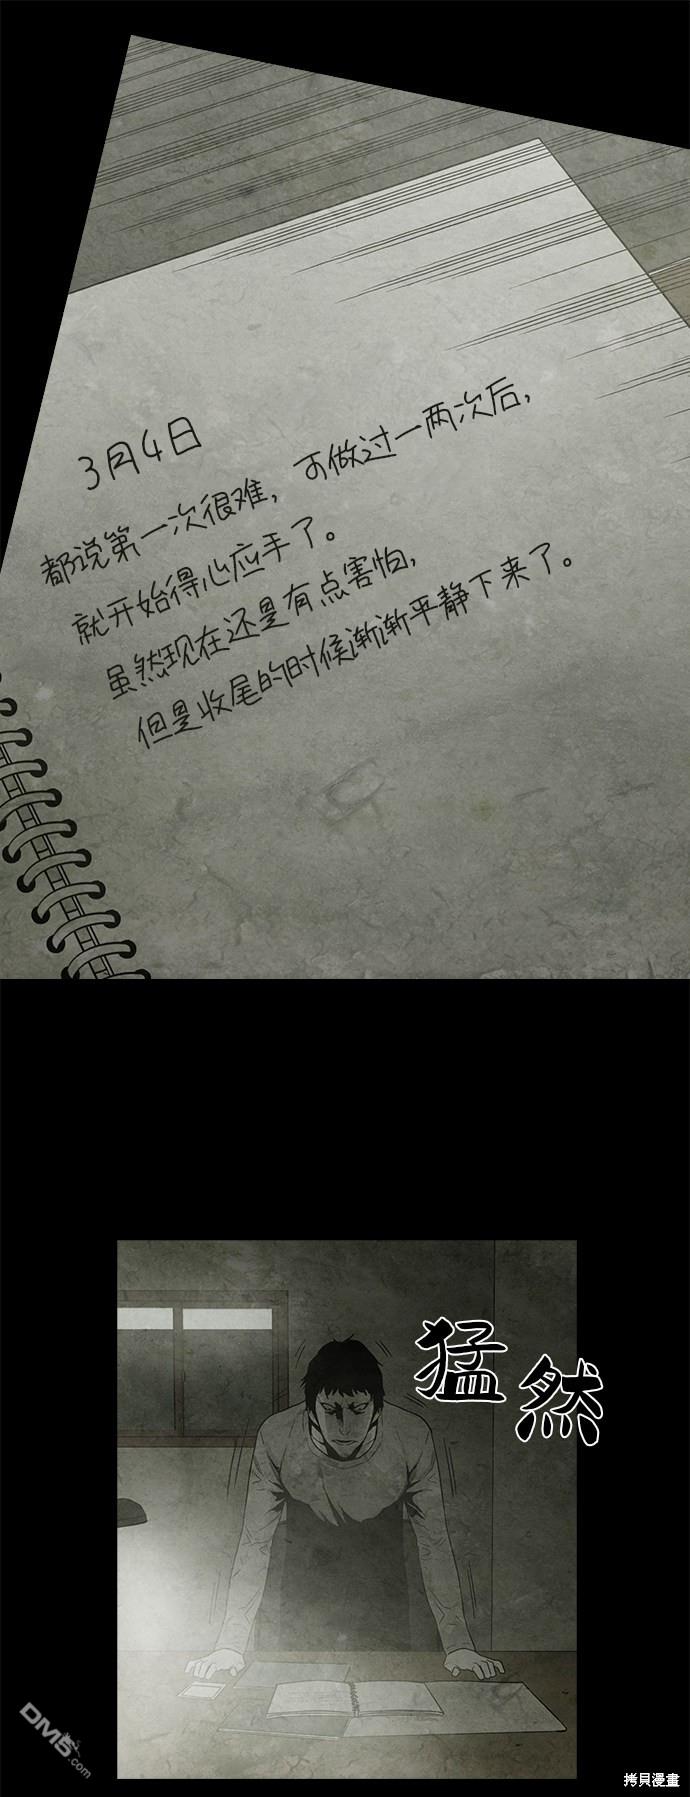 3月4日
都说第一次很难，可做过一两次后，
就开始得心应手了。
虽然现在还是有点害怕，
但是收尾的时候渐渐平静下来了。
猛然
DM5.com
拷贝漫畫